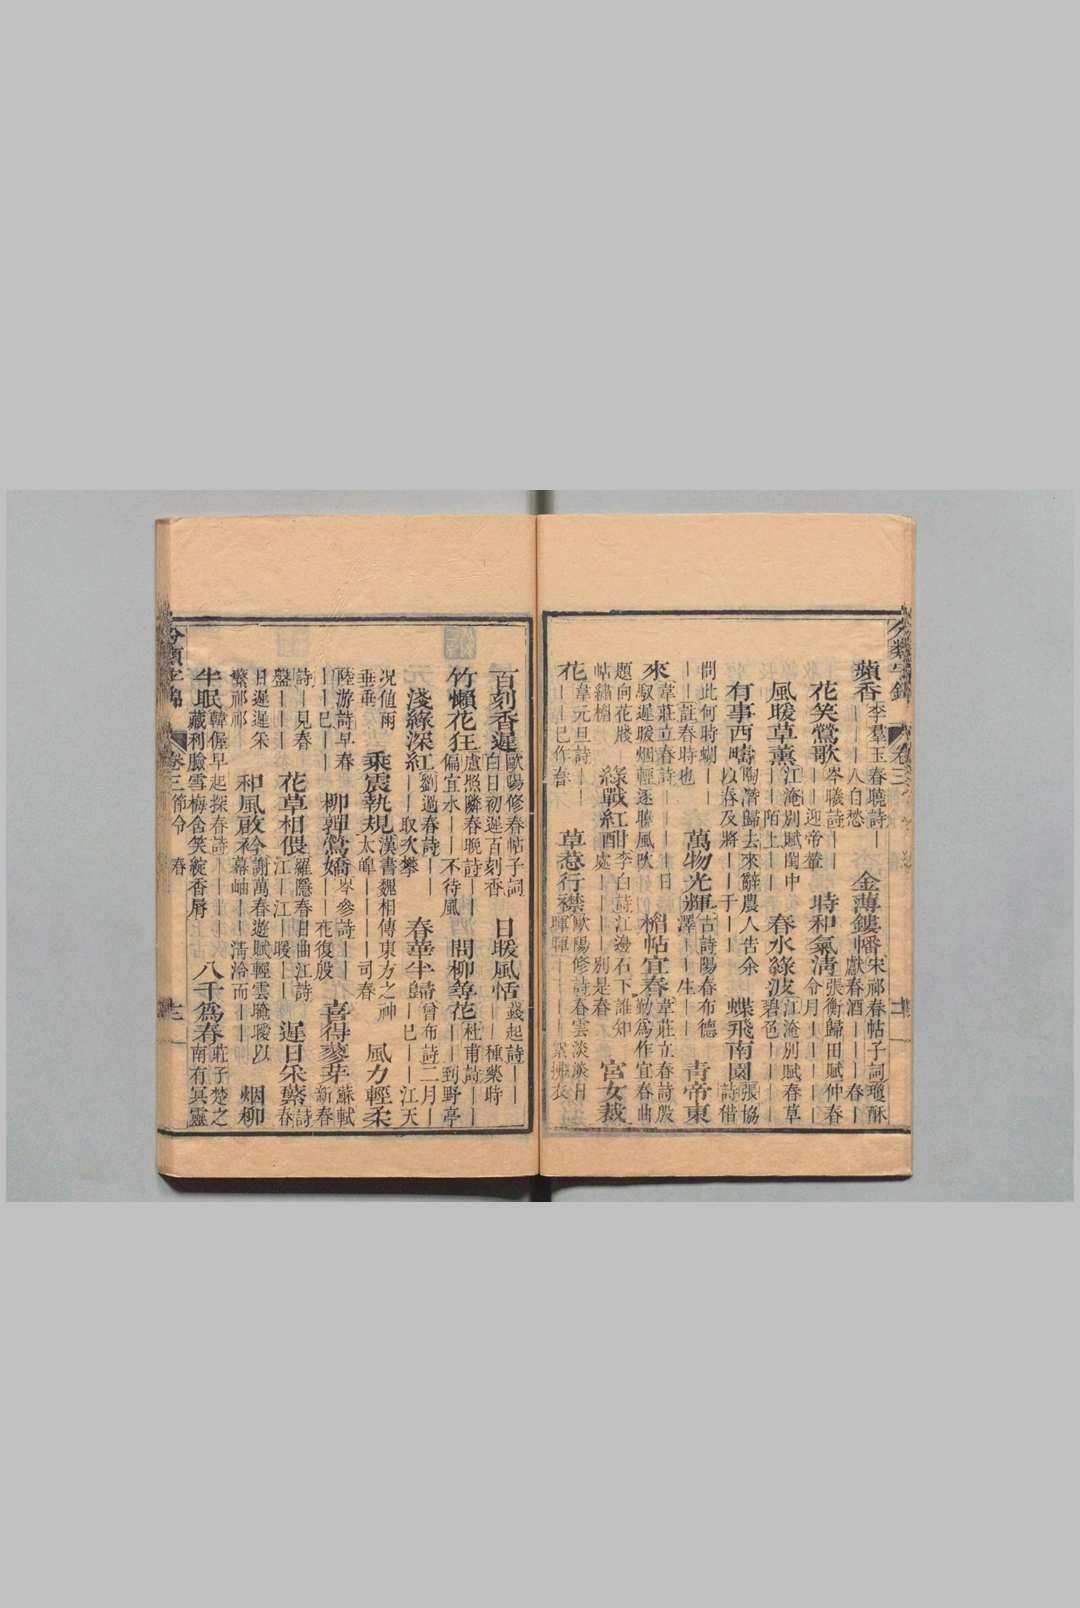 分類字錦 卷三
蘋香李羣玉春聽詩｜｜人自愁 金薄鏤幡宋祁春帖子詞瓊酥獻春酒｜｜｜｜春｜
花笑鶯歌岑曦詩｜｜｜｜迎帝輦 時和氣清張衡歸田賦仲春令月｜｜｜｜
風暖草薰江淹別賦閨中｜｜陌上｜｜ 春水綠波江淹別賦春草碧色｜｜｜｜
有事西疇陶潛歸去來辭農人告余以春及將｜｜于｜｜ 蝶飛南園張協詩借
問此何時蝴｜｜｜｜註春時也 萬物光輝古詩陽春布德澤｜｜生｜｜ 青帝東
來韋莊立春詩｜｜｜｜日馭遲暖烟輕逐曉風吹 楣帖宜春韋莊立春詩殷勤爲作宜春曲
題向花牋帖繡楣 綠戰紅酣李白詩江邊石下誰知處｜｜｜｜別是春 宮女裁
花韋元旦詩｜｜｜｜巳作春 草惹行襟歐陽修詩春雲淡淡日暉暉｜｜｜｜絮拂衣
百刻香遲歐陽修春帖子詞白日初遲百刻香 日暖風恬錢起詩｜｜｜｜種藥時
竹懶花狂盧照鄰春晚詩｜｜偏宜水｜｜不待風 問柳尋花杜甫詩｜｜｜｜到野亭
淺綠深紅劉過春詩｜｜｜｜取次攀 春華半歸曾布詩二月｜｜｜巳｜江天
况值雨垂垂 乘震執規漢書魏相傳東方之神太皞｜｜｜｜司春 風力輕柔
陸游詩早春｜｜巳｜｜ 柳嚲鶯嬌岑參詩｜｜｜｜花復殷 喜得蓼芽蘇軾新春
詩｜見春盤｜｜｜｜ 花草相偎羅隱春日曲江詩江｜江｜暖｜｜ 遲日采蘩詩春
日遲遲采蘩祁祁 和風謝萬春遊賦輕雲曖曖以幕岫｜｜清泠而｜｜ 烟柳
半眠韓偓早起探春詩｜｜｜｜藏利臉雪梅含笑綻香脣 八千爲春莊子楚之南有冥靈
分類字錦 卷三 節令 春 十二